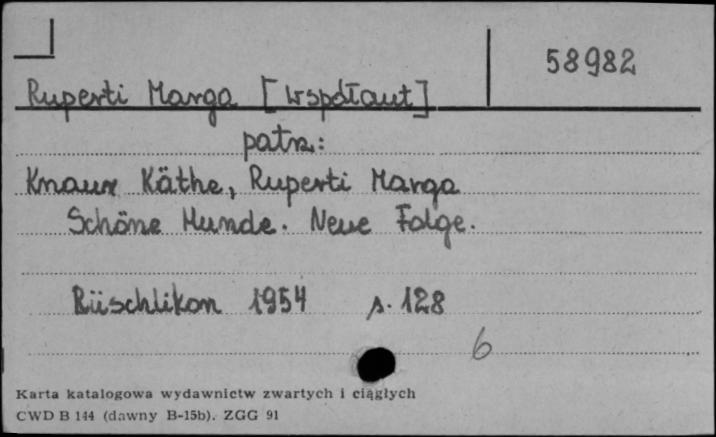 58982
Ruperti Marga [współaut]
patrz:
Knaur Käthe, Ruperti Marga
Schöne Hunde. Neue Folge.
Rüschlikon 1954 s. 128
6
Karta katalogowa wydawnictw zwartych i ciągłych
CWD B 144 (dawny B-15b). ZGG 91